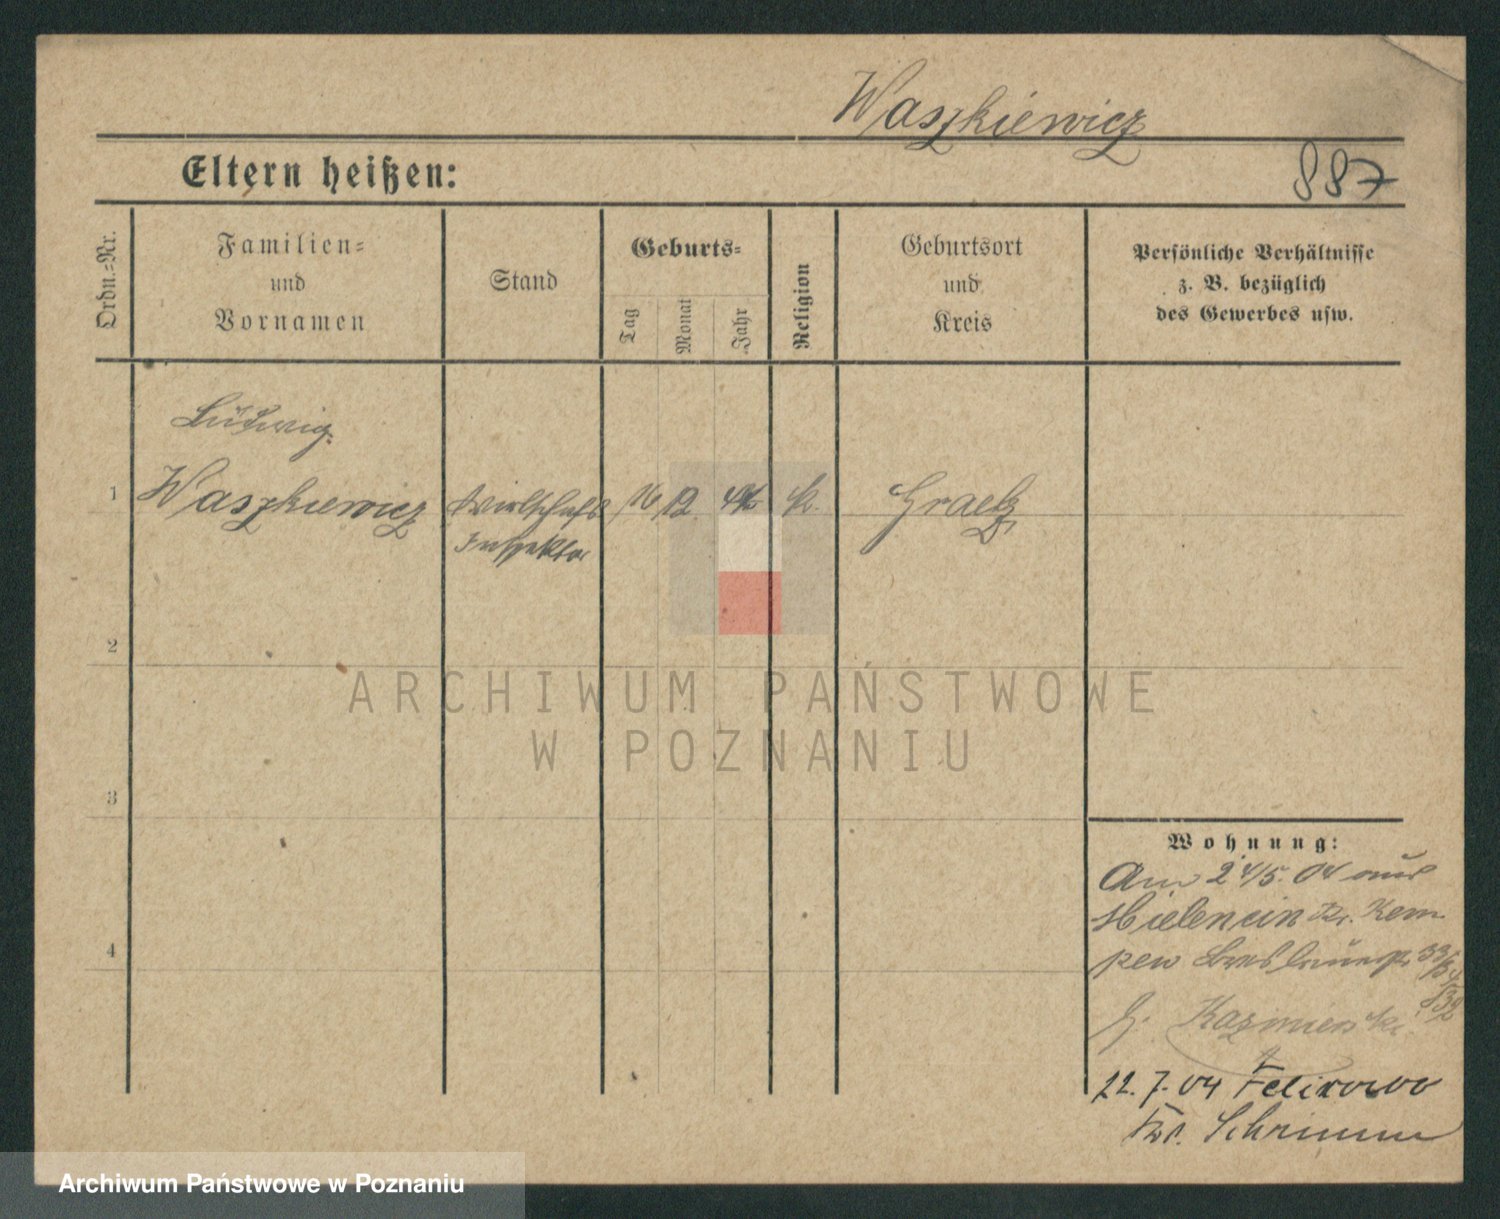 Waszkiewicz
Eltern heißen:
887
Ordn.-Nr.
Familien-
und
Vornamen
Stand
Geburts-
Tag
Monat
Jahr
Religion
Geburtsort
und
Kreis
Persönliche Verhältnisse
z. B. bezüglich
des Gewerbes usw.
Ludwig
1 Waszkiewicz Wirtschafts 16 12 k. Graetz
Inspektor
2
3
4
ARCHIWUM PAŃSTWOWE
W POZNANIU
Wohnung:
Am 24/5. 04 aus
Kr. Kem
pen Breslauerstr 33/34
b. Kazmierski
22. 7. 04 Felixowo
Kr. Schrimm
Archiwum Państwowe w Poznaniu